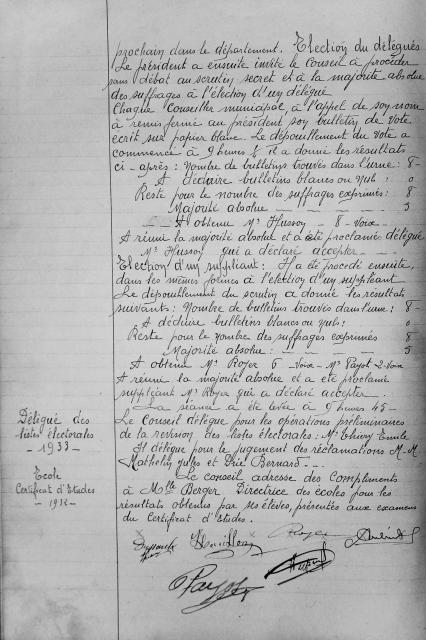 prochain dans le département. Election du délégués
Le président a ensuite invité le Conseil à procéder
sans débat au scrutin secret et à la majorité absolue
des suffrages à l'élection d'un délégué
Chaque Conseiller municipal, à l'appel de son nom
à remis fermé au président son bulletin de vote
écrit sur papier blanc. Le dépouillement du vote a
commencé à 9 heures ½ il a donné les résultats
ci-après : Nombre de bulletins trouvés dans l'urne : 8 -
A déduire bulletins blancs ou nuls : 0
Reste pour le nombre des suffrages exprimés : 8
Majorité absolue — — — — — 5
A obtenu Mr Husson 8 - Voix
A réuni la majorité absolue et a été proclamé délégué
Mr Husson qui a déclaré accepter
Election d'un suppléant : Il a été procédé ensuite,
dans les mêmes formes à l'élection d'un suppléant
Le dépouillement du scrutin a donné les résultats
suivants : Nombre de bulletins trouvés dans l'urne : 8 -
A déduire bulletins blancs ou nuls : 0
Reste pour le nombre des suffrages exprimés 8
Majorité absolue : — — — 5
A obtenu Mr Royer 6 - Voix — Mr Payot 2 - Voix
A réuni la majorité absolue et a été proclamé
suppléant Mr Royer qui a déclaré accepter.
La séance a été levée à 9 heures 45 -
Délégué des
listes électorales
- 1933 -
Le Conseil délègue pour les opérations préliminaires
de la revision des listes électorales : Mr Thiéry Emile
Il délègue pour le jugement des réclamations M-M
Mathelin Jules et Bernard - - -
Ecole
Certificat d'Etudes
- 1932 -
Le conseil adresse des Compliments
à Melle Berger Directrice des écoles pour les
résultats obtenus par ses élèves, présentés aux examens
du Certificat d'Etudes.
Royer
Payot